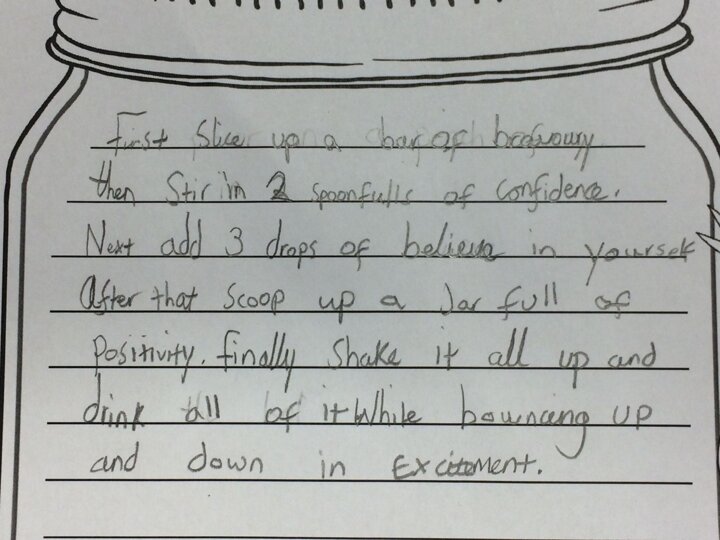 First slice up a bar of
then Stir in 2 spoonfulls of confidence.
Next add 3 drops of believe in yourself
After that scoop up a Jar full of
Positivity. finally shake it all up and
drink all of it While bouncing UP
and down in Excitement.